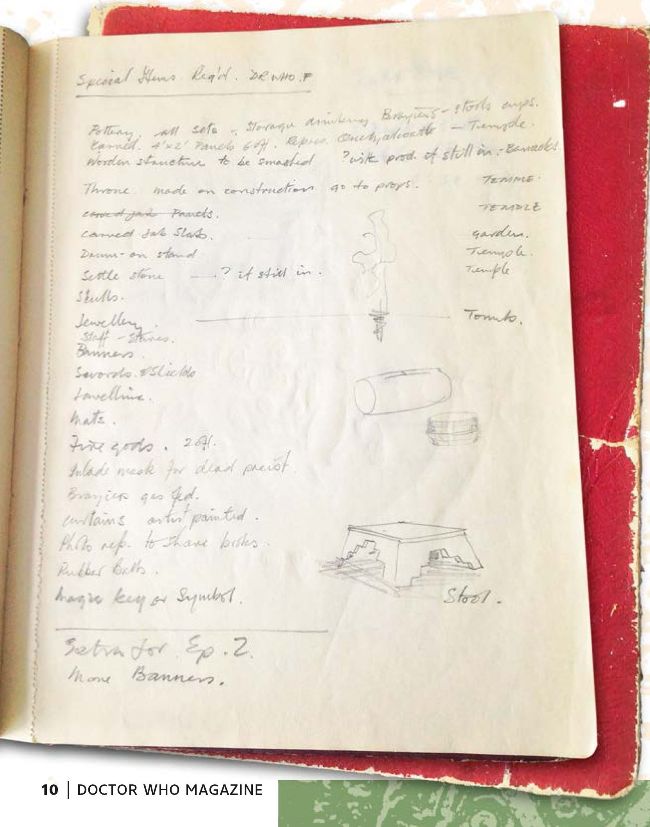 Special Items Req'd. DR WHO. F
Pottery, all sets, Storage drinking Braziers - stools cups.
Carved 4'x2' Panels 6 off. Temple.
Wooden structure to be smashed ? with prod. if still in. - Barracks
Throne made on construction go to props. TEMPLE.
carved jade Panels. TEMPLE
carved Slabs. garden.
Drum - on stand Temple.
Settle stone ? if still in. Temple
Skulls.
Jewellery. Tombs.
Staff - Staves.
Banners.
Swords & Shields
Javelins.
Mats.
Fire gods. 2 off.
mask for dead priest.
Braziers gas fed.
curtains artist painted.
Photo rep. to stone blocks.
Rubber Balls.
key or Symbol.
Stool.
Extra for Ep. 2.
More Banners.
10 | DOCTOR WHO MAGAZINE